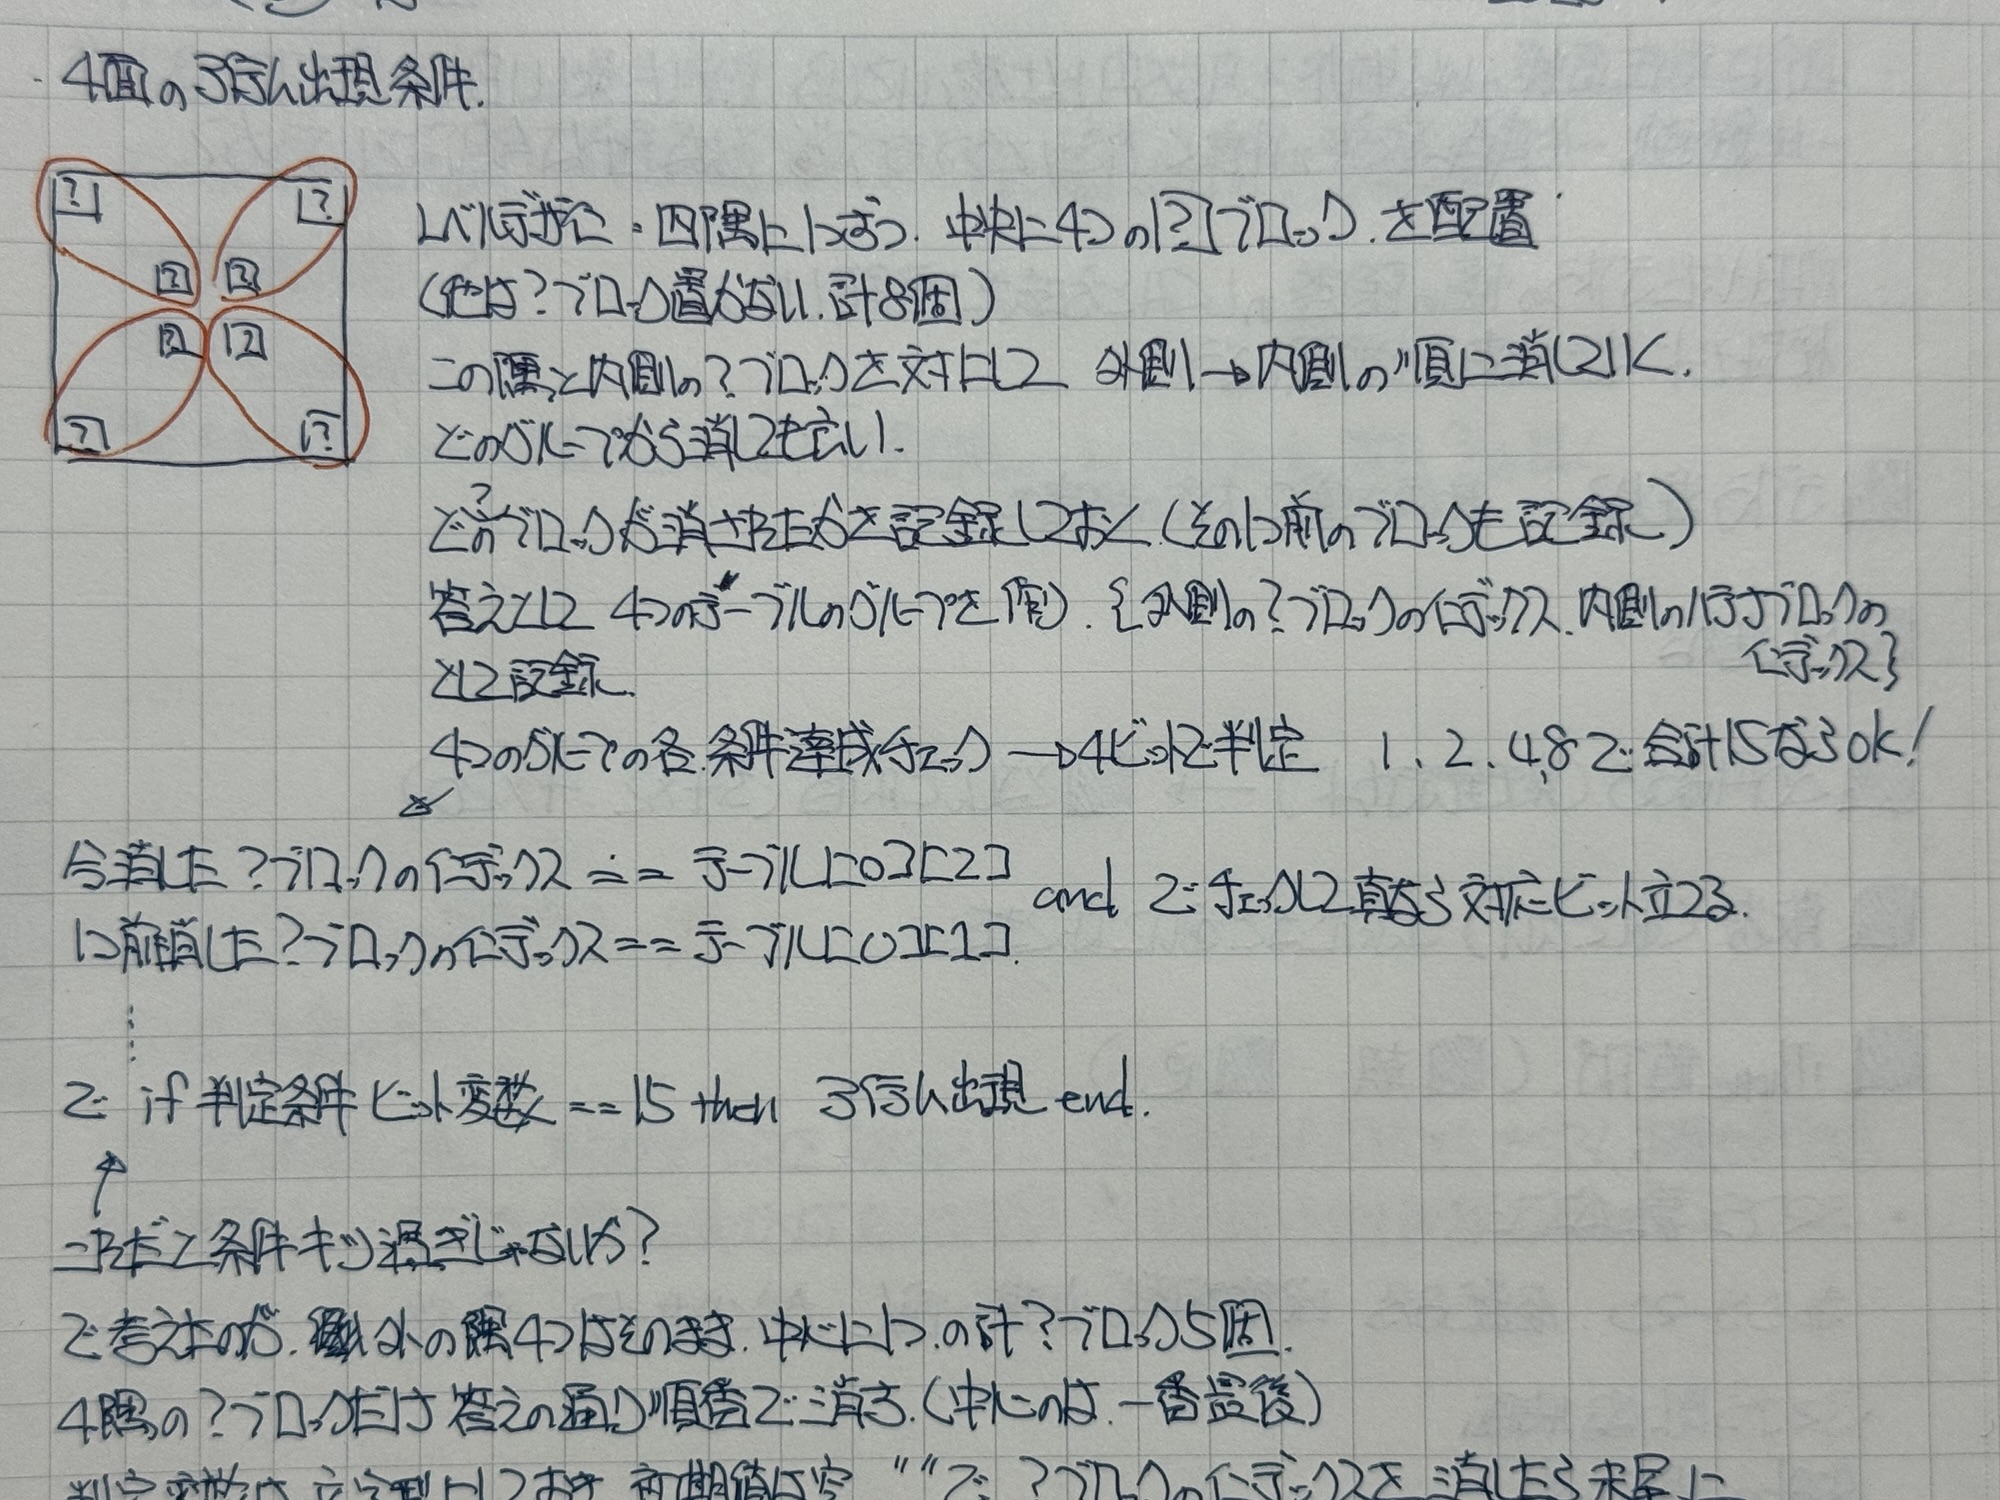 4面のろ行ん出現条件.
? ?
? ?
? ?
? ?
レベルデザイン・四隅に1つずつ. 中央に4つの[?]ブロック.を配置
(他は?ブロック置かない.計8個)
この隅と内側の?ブロックを対にして 外側→内側の順に消していく.
どのグループから消しても良い.
どの?ブロックが消されたかを記録しておく(その1つ前のブロックも記録)
答えとして 4つのテーブルのグループを作り. {外側の?ブロックのインデックス. 内側のハテナブロックの
インデックス}
として記録.
4つのグループの各.条件達成チェック →4ビットで判定 1、2、4、8で合計15ならOK!
今消した?ブロックのインデックス == テーブル[0][2]
1つ前消した?ブロックのインデックス == テーブル[0][1].
and でチェックして真なら対応ビット立てる.
で if 判定条件ビット変数 == 15 then ろ行ん出現 end.
↑
これだと条件キツ過ぎじゃないか?
で考えたのが. 外の隅4つはそのまま.中心に1つ.の計?ブロック5個.
4隅の?ブロックだけ答えの通り順番で消す.(中心のは.一番最後)
判定変数は文字型にしておき 初期値は空 ""で ?ブロックのインデックスを消したら末尾に